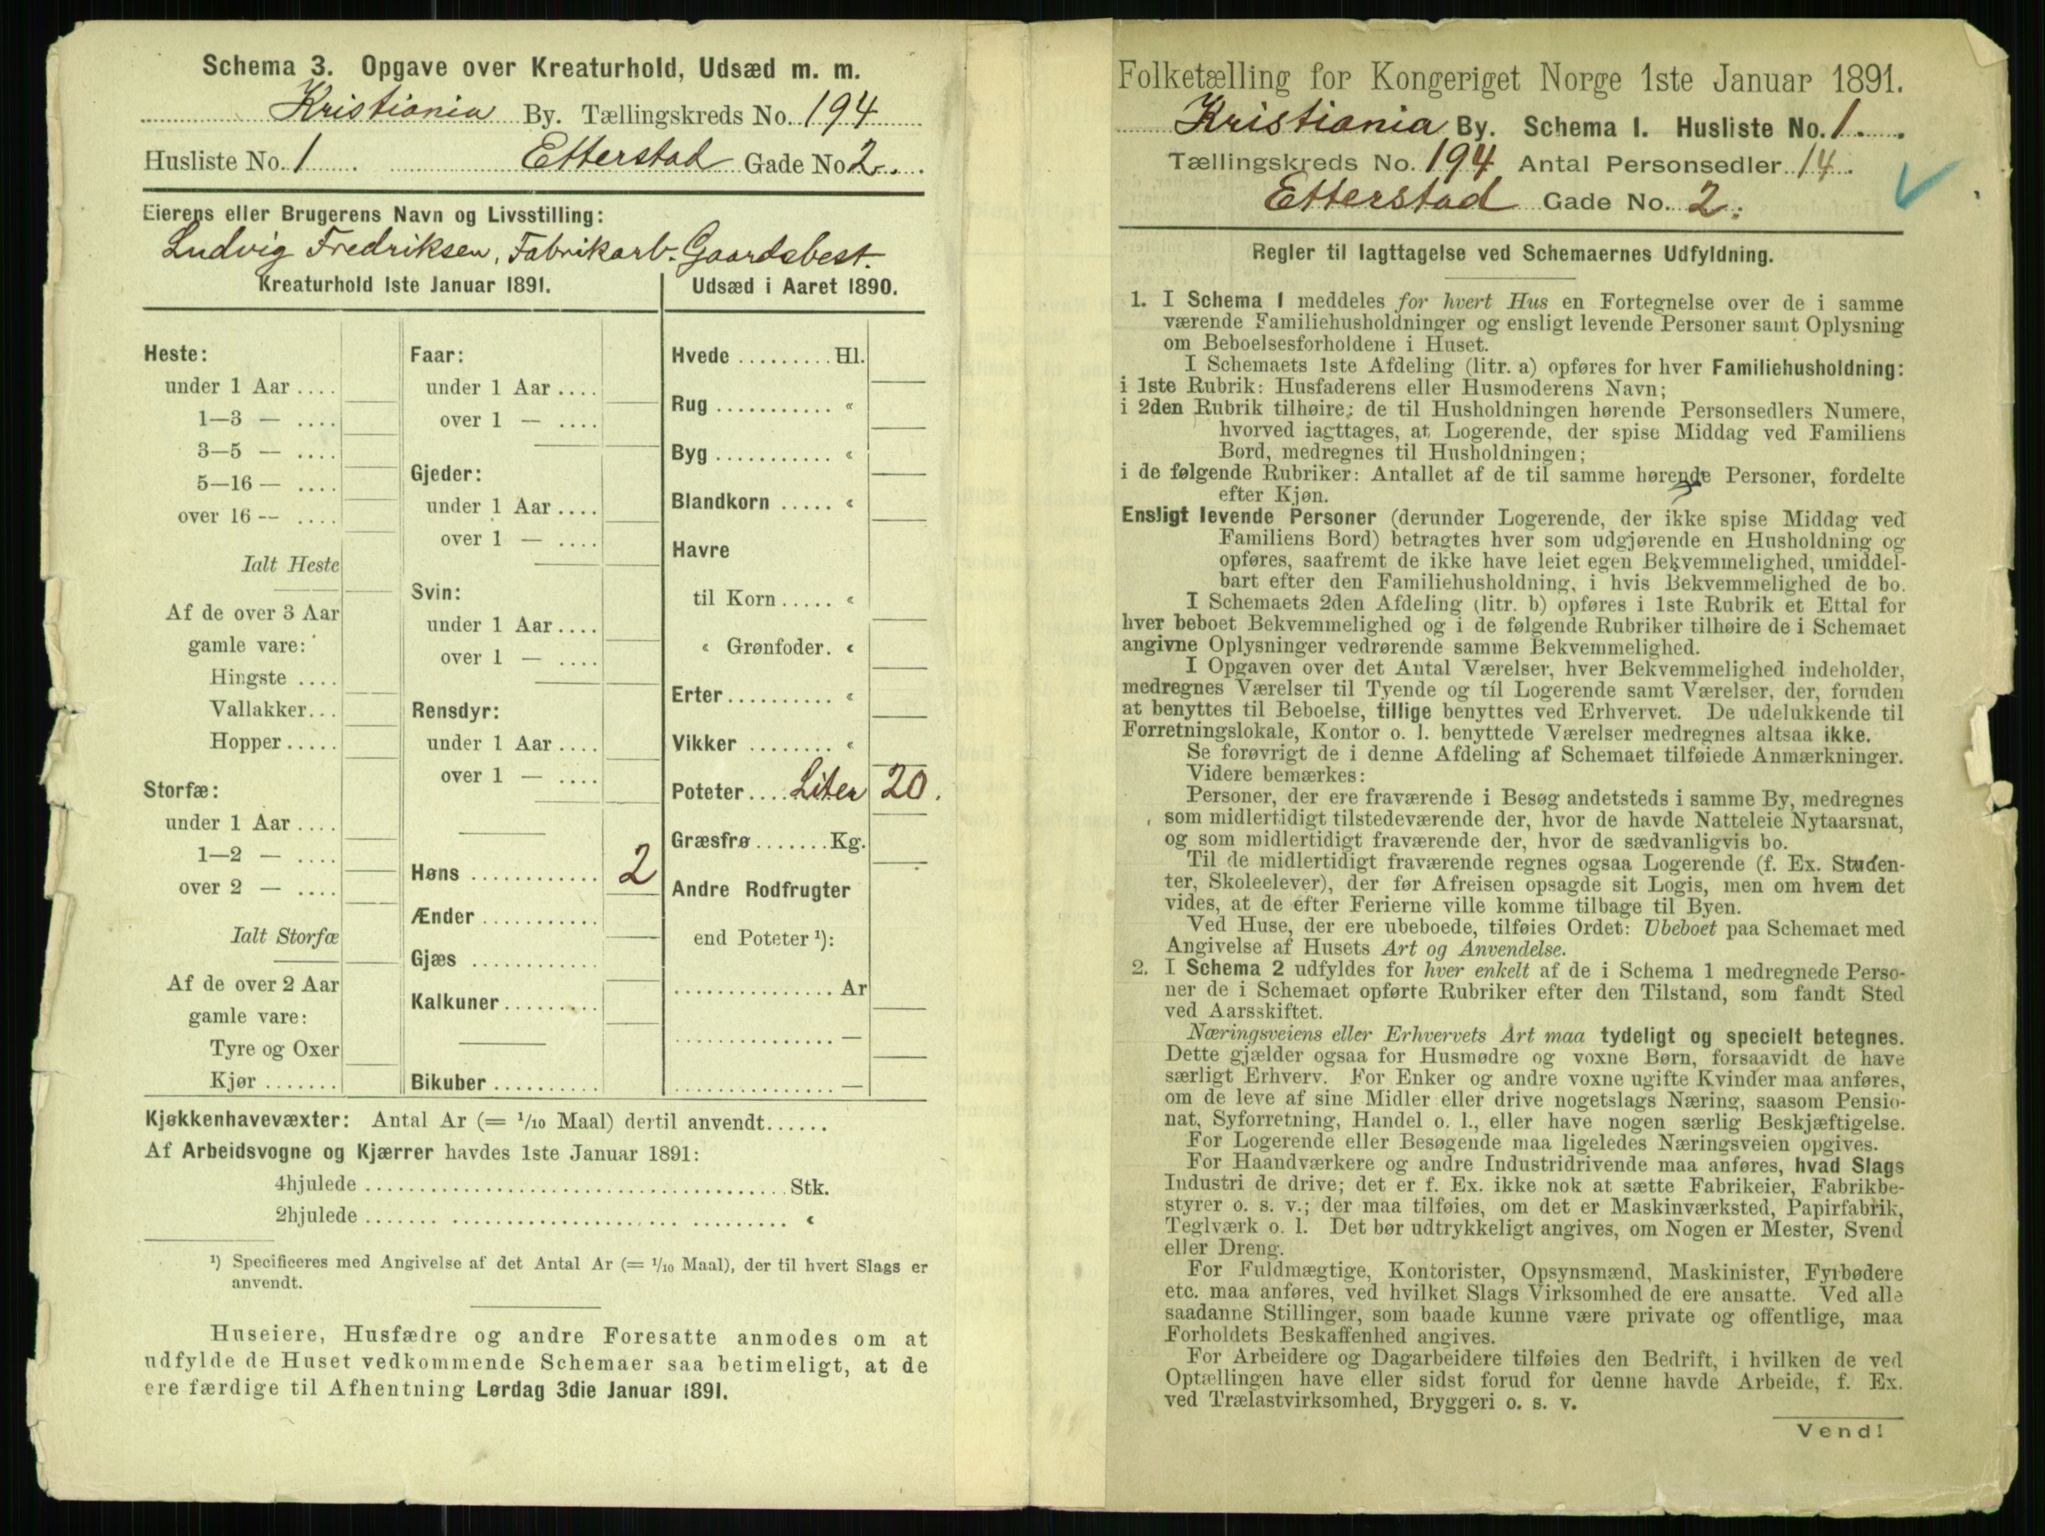 Schema 3. Opgave over Kreaturhold, Udsæd m. m.
Kristiania By. Tællingskreds No. 194
Husliste No. 1 Etterstad Gade No 2.
Eierens eller Brugerens Navn og Livsstilling:
Ludvig Fredriksen, Fabrikarb. Gaardsbest.
Kreaturhold 1ste Januar 1891.
Heste:
under 1 Aar ....
1—3 — ....
3—5 — ....
5—16 — ....
over 16 — ....
Ialt Heste
Af de over 3 Aar
gamle vare:
Hingste ....
Vallakker...
Hopper.....
Storfæ:
under 1 Aar ....
1—2 — ....
over 2 — ....
Ialt Storfæ
Af de over 2 Aar
gamle vare:
Tyre og Oxer
Kjør .......
Faar:
under 1 Aar ....
over 1 — ....
Gjeder:
under 1 Aar ....
over 1 — ....
Svin:
under 1 Aar ....
over 1 — ....
Rensdyr:
under 1 Aar ....
over 1 — ....
Høns ............ 2
Ænder ...........
Gjæs ............
Kalkuner.........
Bikuber ..........
Udsæd i Aaret 1890.
Hvede ......... Hl.
Rug ........... «
Byg ........... «
Blandkorn ..... «
Havre
til Korn ..... «
« Grønfoder. «
Erter......... «
Vikker ........ «
Poteter .... Liter 20.
Græsfrø ....... Kg.
Andre Rodfrugter
end Poteter ¹):
............... Ar
............... —
............... —
Kjøkkenhavevæxter: Antal Ar (= 1/10 Maal) dertil anvendt......
Af Arbeidsvogne og Kjærrer havdes 1ste Januar 1891:
4hjulede ........................................ Stk.
2hjulede ........................................ «
¹) Specificeres med Angivelse af det Antal Ar (= 1/10 Maal), der til hvert Slags er
anvendt.
Huseiere, Husfædre og andre Foresatte anmodes om at
udfylde de Huset vedkommende Schemaer saa betimeligt, at de
ere færdige til Afhentning Lørdag 3die Januar 1891.
Folketælling for Kongeriget Norge 1ste Januar 1891.
Kristiania By. Schema 1. Husliste No. 1.
Tællingskreds No. 194 Antal Personsedler 14.
Etterstad Gade No. 2.
Regler til Iagttagelse ved Schemaernes Udfyldning.
1. I Schema 1 meddeles for hvert Hus en Fortegnelse over de i samme
værende Familiehusholdninger og ensligt levende Personer samt Oplysning
om Beboelsesforholdene i Huset.
I Schemaets 1ste Afdeling (litr. a) opføres for hver Familiehusholdning:
i 1ste Rubrik: Husfaderens eller Husmoderens Navn;
i 2den Rubrik tilhøire: de til Husholdningen hørende Personsedlers Numere,
hvorved iagttages, at Logerende, der spise Middag ved Familiens
Bord, medregnes til Husholdningen;
i de følgende Rubriker: Antallet af de til samme hørende Personer, fordelte
efter Kjøn.
Ensligt levende Personer (derunder Logerende, der ikke spise Middag ved
Familiens Bord) betragtes hver som udgjørende en Husholdning og
opføres, saafremt de ikke have leiet egen Bekvemmelighed, umiddel-
bart efter den Familiehusholdning, i hvis Bekvemmelighed de bo.
I Schemaets 2den Afdeling (litr. b) opføres i 1ste Rubrik et Ettal for
hver beboet Bekvemmelighed og i de følgende Rubriker tilhøire de i Schemaet
angivne Oplysninger vedrørende samme Bekvemmelighed.
I Opgaven over det Antal Værelser, hver Bekvemmelighed indeholder,
medregnes Værelser til Tyende og til Logerende samt Værelser, der, foruden
at benyttes til Beboelse, tillige benyttes ved Erhvervet. De udelukkende til
Forretningslokale, Kontor o. l. benyttede Værelser medregnes altsaa ikke.
Se forøvrigt de i denne Afdeling af Schemaet tilføiede Anmærkninger.
Videre bemærkes:
Personer, der ere fraværende i Besøg andetsteds i samme By, medregnes
som midlertidigt tilstedeværende der, hvor de havde Natteleie Nytaarsnat,
og som midlertidigt fraværende der, hvor de sædvanligvis bo.
Til de midlertidigt fraværende regnes ogsaa Logerende (f. Ex. Studen-
ter, Skoleelever), der før Afreisen opsagde sit Logis, men om hvem det
vides, at de efter Ferierne ville komme tilbage til Byen.
Ved Huse, der ere ubeboede, tilføies Ordet: Ubeboet paa Schemaet med
Angivelse af Husets Art og Anvendelse.
2. I Schema 2 udfyldes for hver enkelt af de i Schema 1 medregnede Perso-
ner de i Schemaet opførte Rubriker efter den Tilstand, som fandt Sted
ved Aarsskiftet.
Næringsveiens eller Erhvervets Art maa tydeligt og specielt betegnes.
Dette gjælder ogsaa for Husmødre og voxne Børn, forsaavidt de have
særligt Erhverv. For Enker og andre voxne ugifte Kvinder maa anføres,
om de leve af sine Midler eller drive nogetslags Næring, saasom Pensio-
nat, Syforretning, Handel o. l., eller have nogen særlig Beskjæftigelse.
For Logerende eller Besøgende maa ligeledes Næringsveien opgives.
For Haandværkere og andre Industridrivende maa anføres, hvad Slags
Industri de drive; det er f. Ex. ikke nok at sætte Fabrikeier, Fabrikbe-
styrer o. s. v.; der maa tilføies, om det er Maskinværksted, Papirfabrik,
Teglværk o. l. Det bør udtrykkeligt angives, om Nogen er Mester, Svend
eller Dreng.
For Fuldmægtige, Kontorister, Opsynsmænd, Maskinister, Fyrbødere
etc. maa anføres, ved hvilket Slags Virksomhed de ere ansatte. Ved alle
saadanne Stillinger, som baade kunne være private og offentlige, maa
Forholdets Beskaffenhed angives.
For Arbeidere og Dagarbeidere tilføies den Bedrift, i hvilken de ved
Optællingen have eller sidst forud for denne havde Arbeide, f. Ex.
ved Trælastvirksomhed, Bryggeri o. s. v.
Vend!